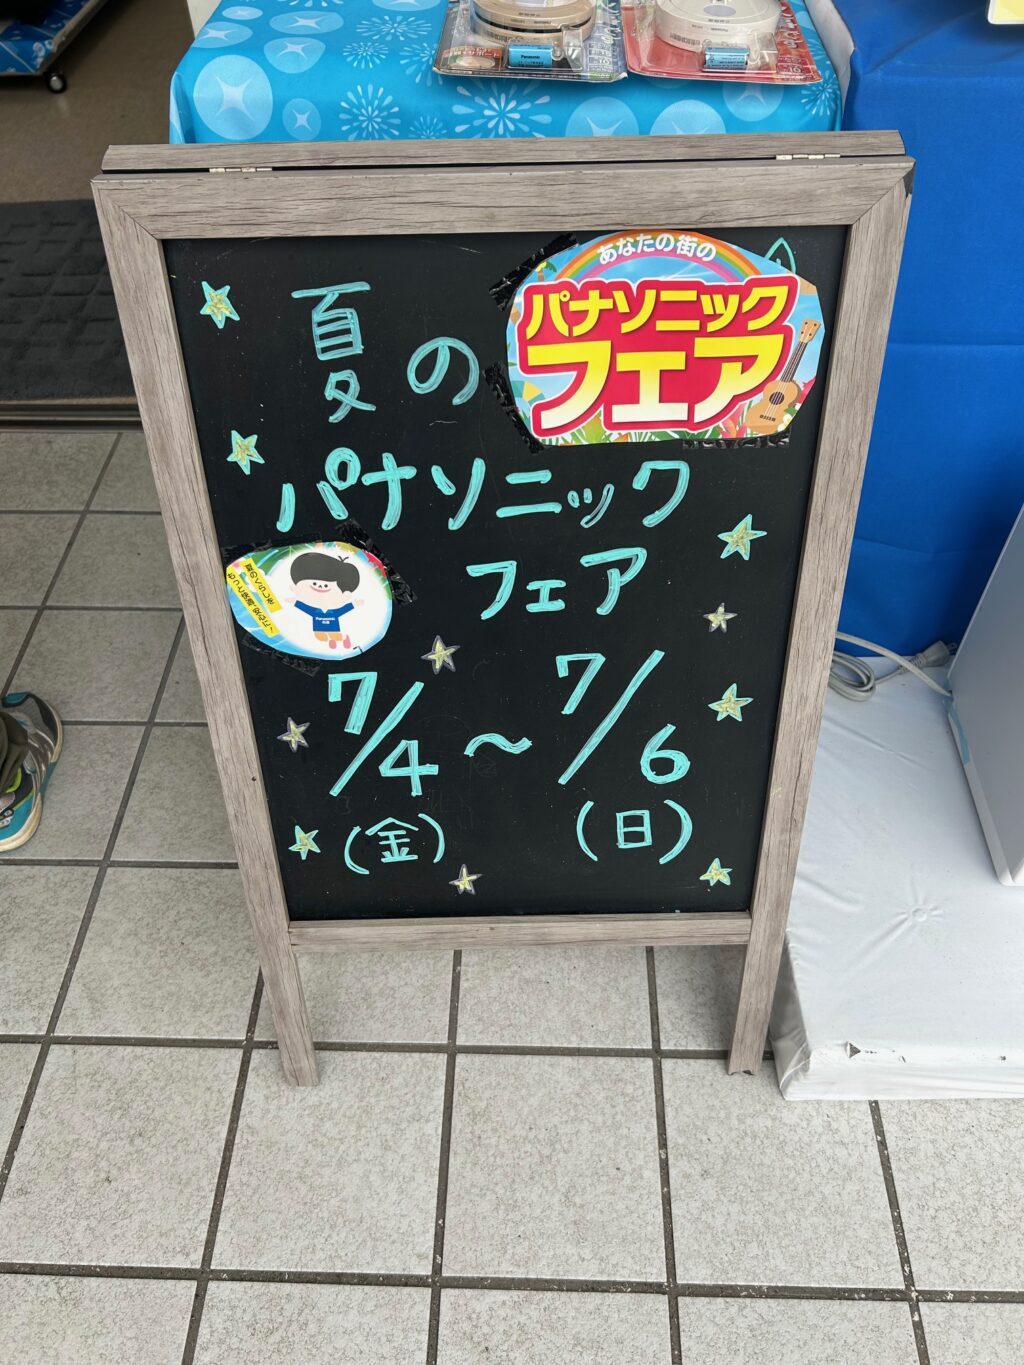 あなたの街の
パナソニック
フェア
夏の
パナソニック
フェア
Panasonic
7/4~7/6
(金) (日)
Panasonic
Panasonic